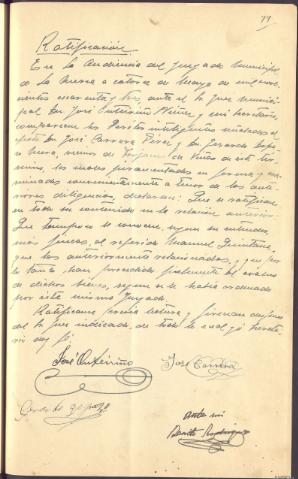 77
Ratificación
En la Audiencia del Juzgado Municipal
de la a catorce de Mayo de mil nove-
cientos cuarenta y tres, ante el Sr. Juez Munici-
pal Don José y mi Secretario,
comparecen los Peritos inteligentes
Don José Carrera Perez y Don Gerardo
de Viñas de este tér-
mino, los cuales juramentados en forma y exa-
minados convenientemente a tenor de los ante-
riores diligencias, declaran: Que se ratifican
en todo su contenido en la relación anterior.
Que tampoco se conocen, segun su entender,
más fincas al referido Manuel Quintana,
que las anteriormente relacionadas, y en por
lo tanto, han procedido fielmente al avaluo
de dichos bienes, segun se le habia ordenado
por este mismo Juzgado.
Ratificanse previa lectura y firman despues
del Sr. Juez indicado, de todo lo cual yo Secreta-
rio doy fé
José
José Carrera
Gerardo
Ante mi
Benito Rodriguez